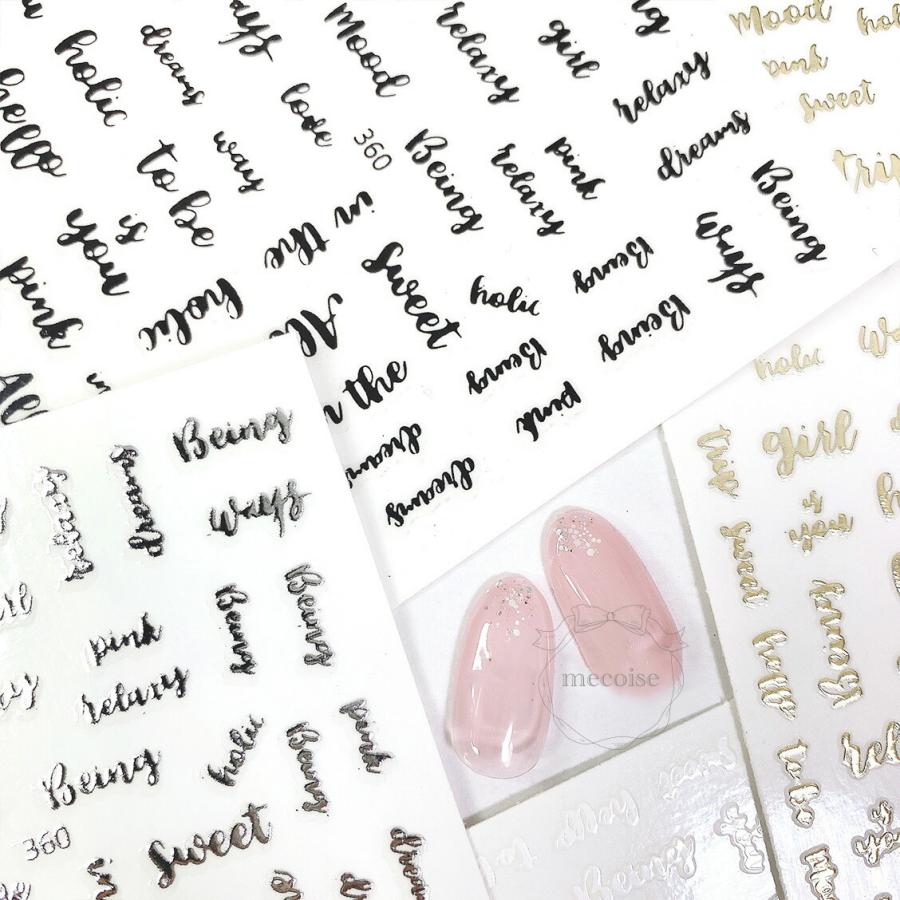 ways
Mood
relaxy
girl
Mood
holic
dreams
relaxy
pink
hello
love
360
sweet
to be
way
Being
relaxy
pink
dreams
Trip
you
is
in the
Being
pink
holic
Sweet
holic
Being
Ways
All
Being
Being
in the
pink
dreams
dreams
All
in
Being
relaxy
dreams
Ways
pink
Being
Being
relaxy
Being
holic
Being
pink
360
Sweet
holic
trip
girl
is
you
sweet
hello
Being
to be
mecoise
hello
Being